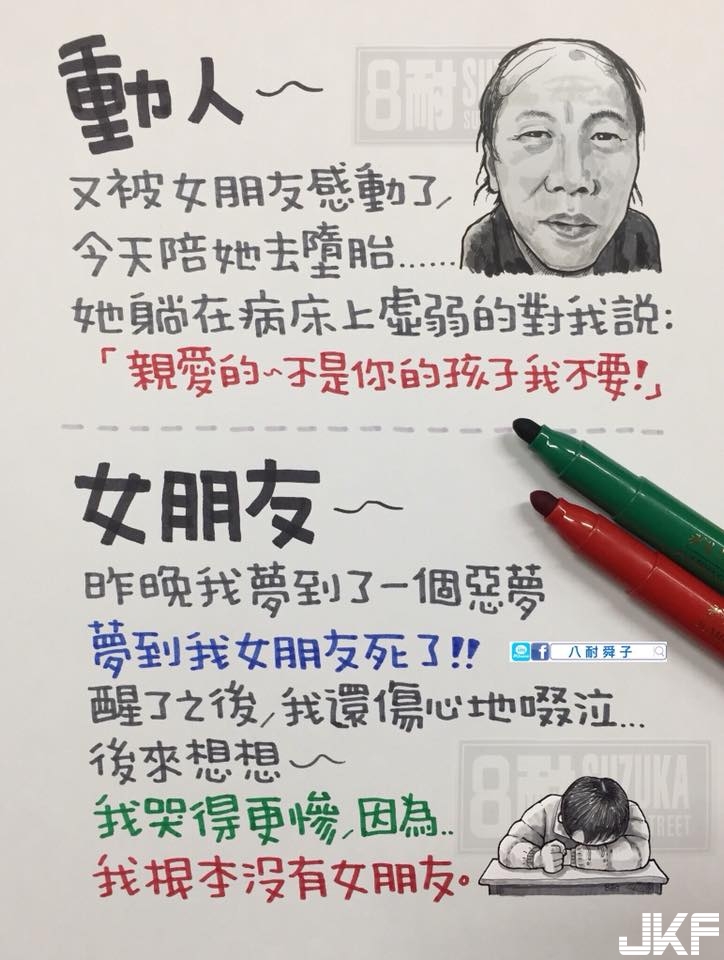 動人～
又被女朋友感動了,
今天陪她去墮胎……
她躺在病床上虛弱的對我說:
「親愛的~不是你的孩子我不要!」
女朋友～
昨晚我夢到了一個惡夢
夢到我女朋友死了!!
八耐舜子
醒了之後,我還傷心地啜泣...
後來想想～
我哭得更慘,因為..
我根本沒有女朋友。
8耐 SUZUKA
STREET
JKF